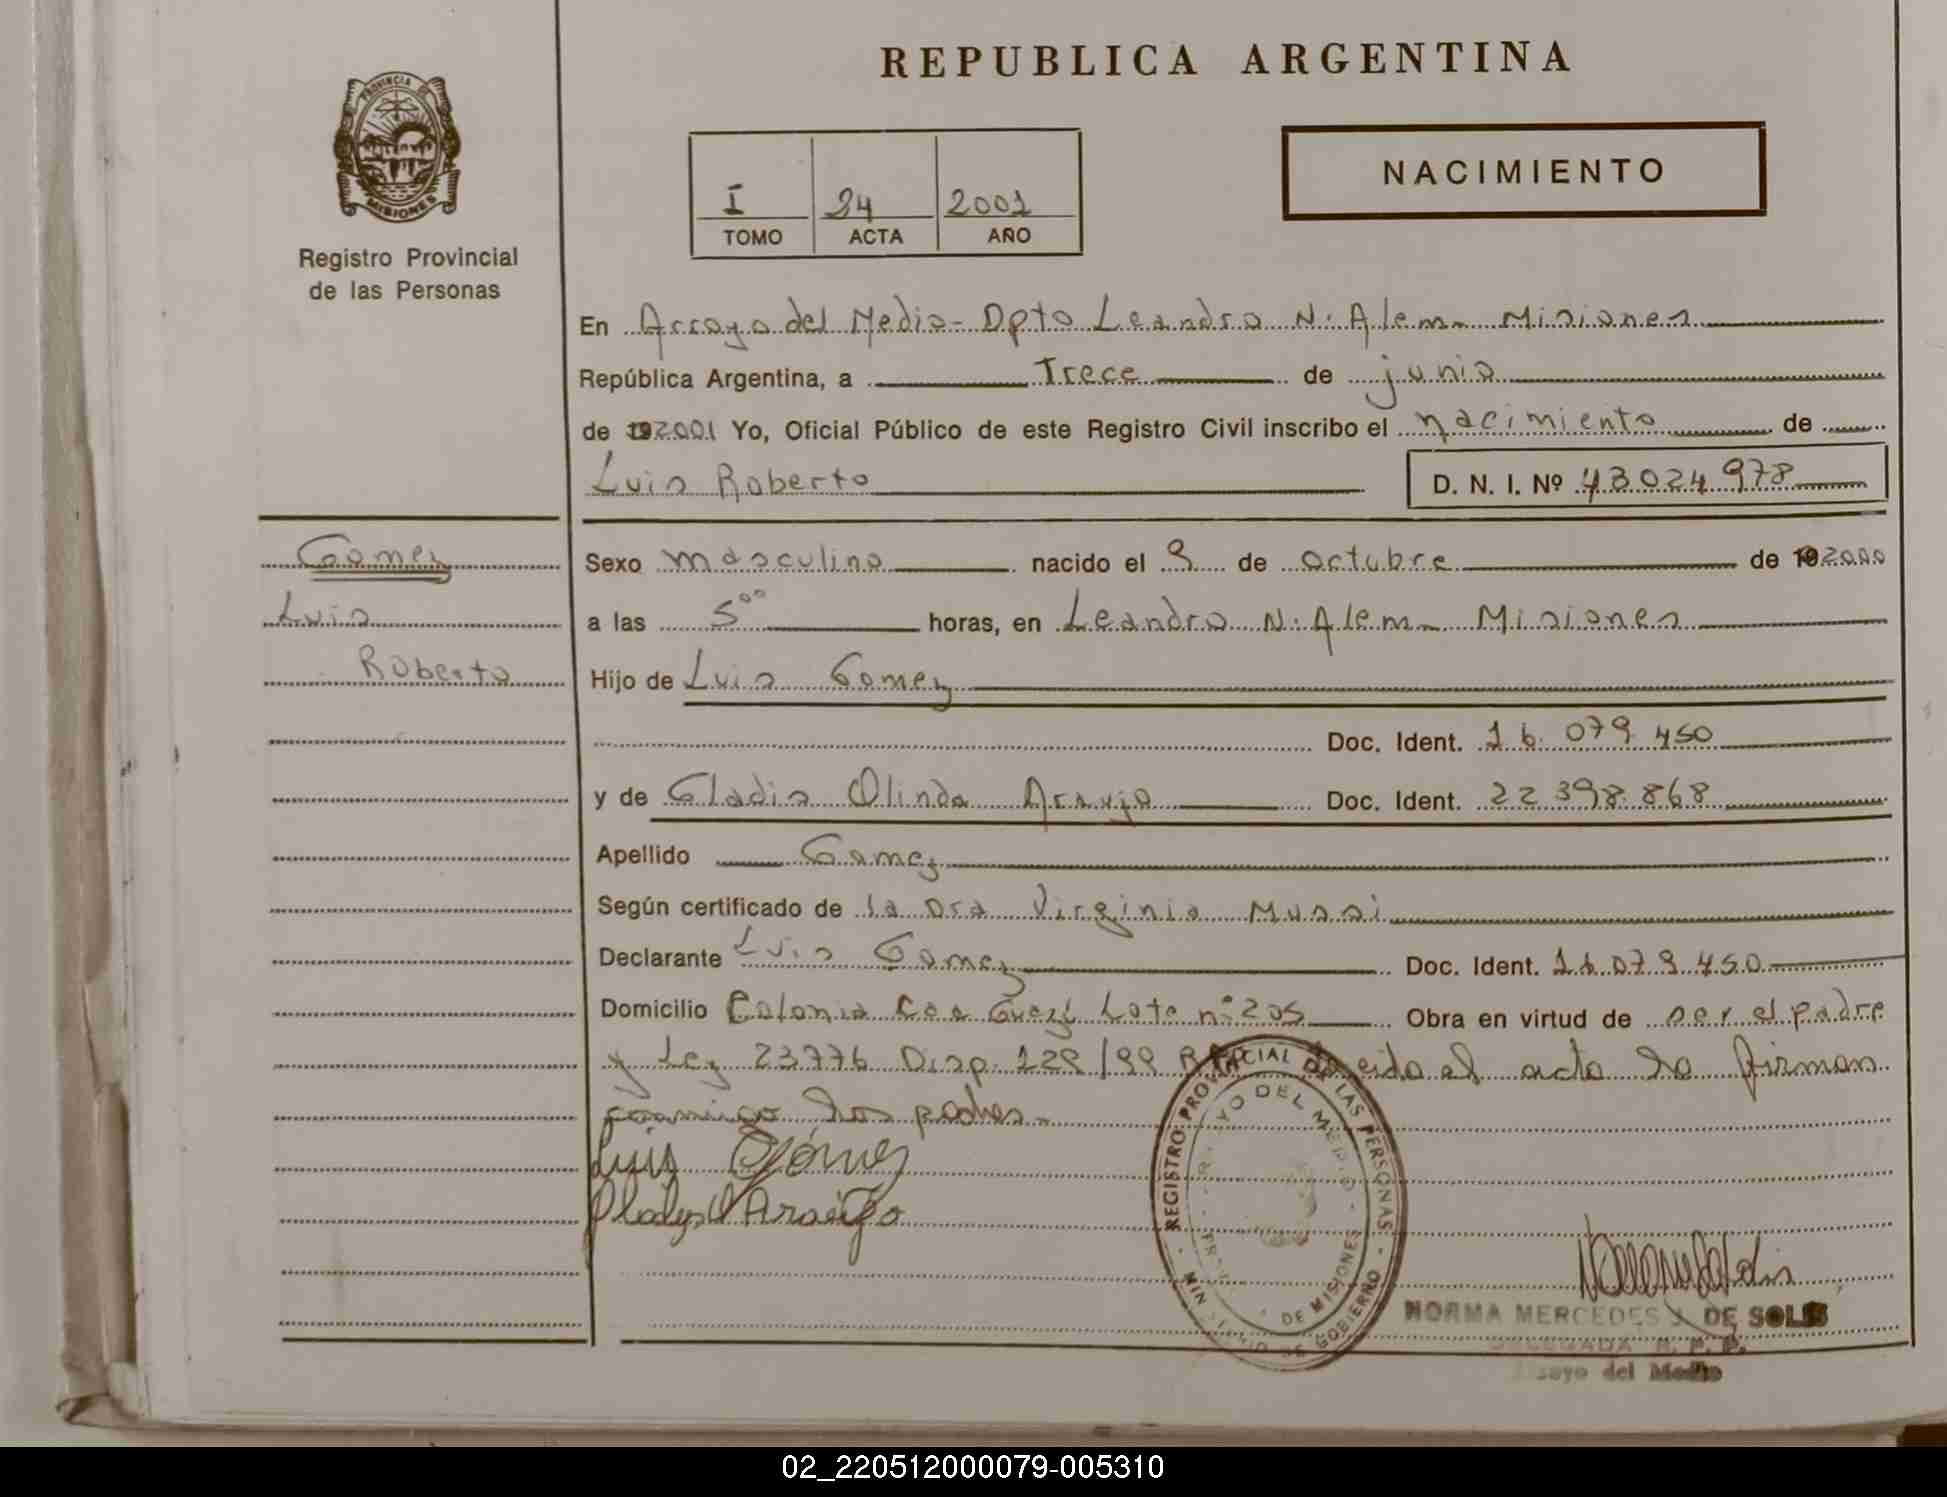 REPUBLICA ARGENTINA
PROVINCIA DE
MISIONES
Registro Provincial
de las Personas
NACIMIENTO
I 24 2001
TOMO ACTA AÑO
En Arroyo del Medio - Dpto Leandro N. Alem - Misiones
República Argentina, a Trece de junio
de 192001 Yo, Oficial Público de este Registro Civil inscribo el nacimiento de
Luis Roberto D. N. I. Nº 43024978
Gomez
Luis
Roberto
Sexo masculino nacido el 9 de octubre de 192000
a las 5⁰⁰ horas, en Leandro N. Alem - Misiones
Hijo de Luis Gomez
Doc. Ident. 16.079.450
y de Gladis Olinda Araujo Doc. Ident. 22 398.868
Apellido Gomez
Según certificado de la Dra Virginia Mussi
Declarante Luis Gomez Doc. Ident. 16.079.450
Domicilio Colonia Caa Guazú Lote nº 205 Obra en virtud de ser el padre
y Ley 23776 Disp. 129/99 leida el acta la firman
conmigo los padres.-
Luis Gómez
Gladys O Araujo
REGISTRO PROVINCIAL DE LAS PERSONAS
ARROYO DEL MEDIO
DE MISIONES
MINISTERIO DE GOBIERNO
NORMA MERCEDES J. DE SOLIS
DELEGADA R. P. P.
Arroyo del Medio
02_220512000079-005310